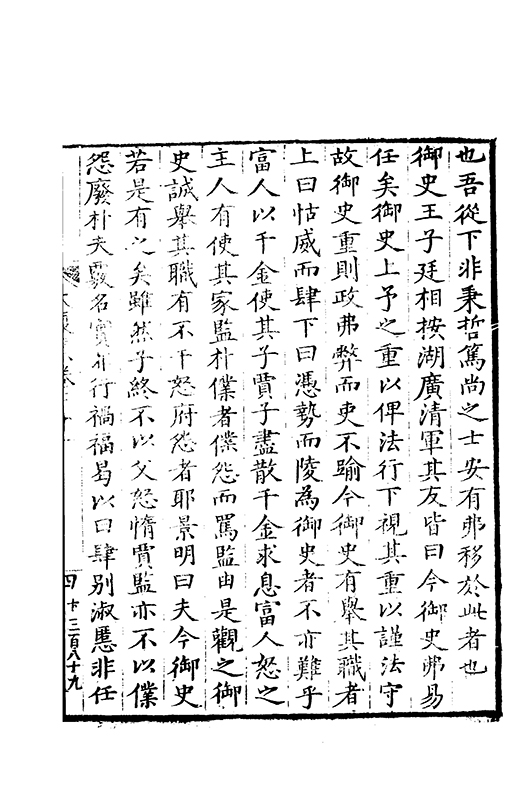 也吾從下非秉哲篤尚之士安有弗移於此者也
御史王子廷相按湖廣清軍其友皆曰今御史弗易
任矣御史上予之重以俾法行下視其重以謹法守
故御史重則政弗弊而吏不踰今御史有舉其職者
上曰怙威而肆下曰憑勢而陵為御史者不亦難乎
富人以千金使其子賈子盡散千金求息富人怒之
主人有使其家監朴僕者僕怨而罵監由是觀之御
史誠舉其職有不干怒府怨者耶景明曰夫今御史
若是有之矣雖然子終不以父怒惰賈監亦不以僕
怨廢朴夫覈名實行禍福曷以曰肆別淑慝非任
四 卞三百八十九